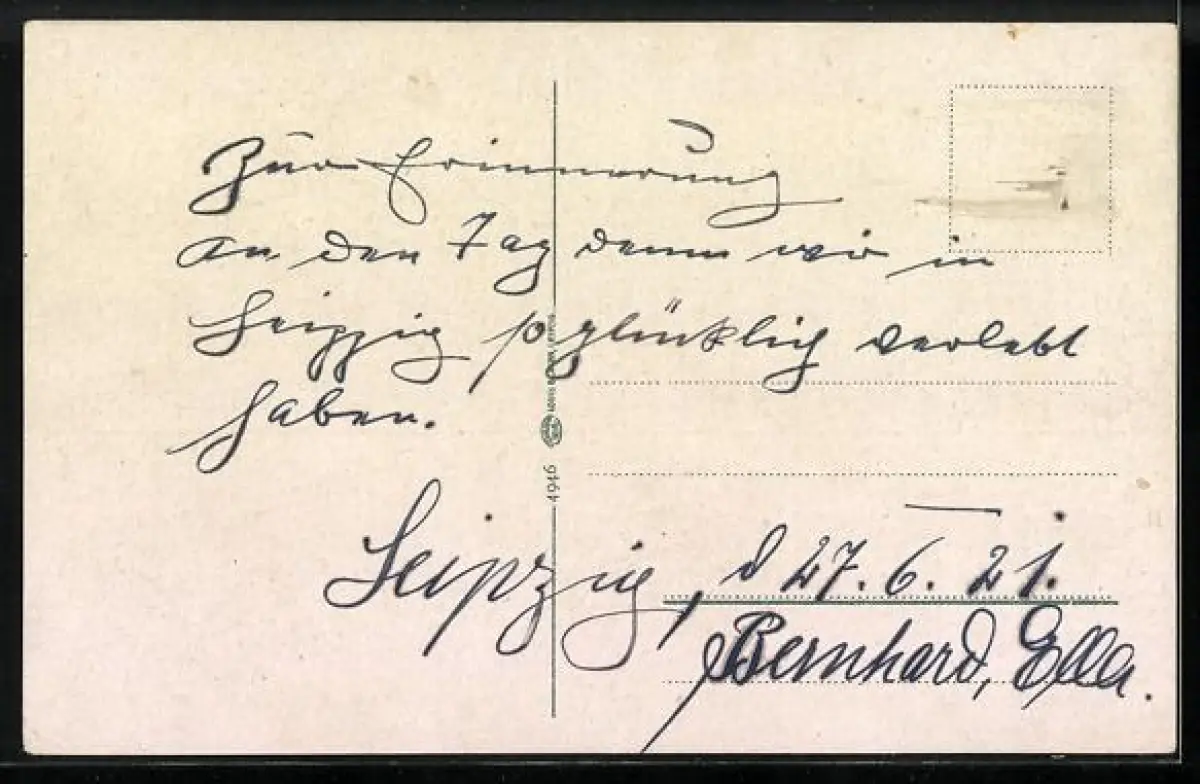 Zur Erinnerung
an den Tag denn wir in
Leipzig so glücklich verlebt
haben.
Leipzig, d 27. 6. 21.
Bernhard, Ella.
4946